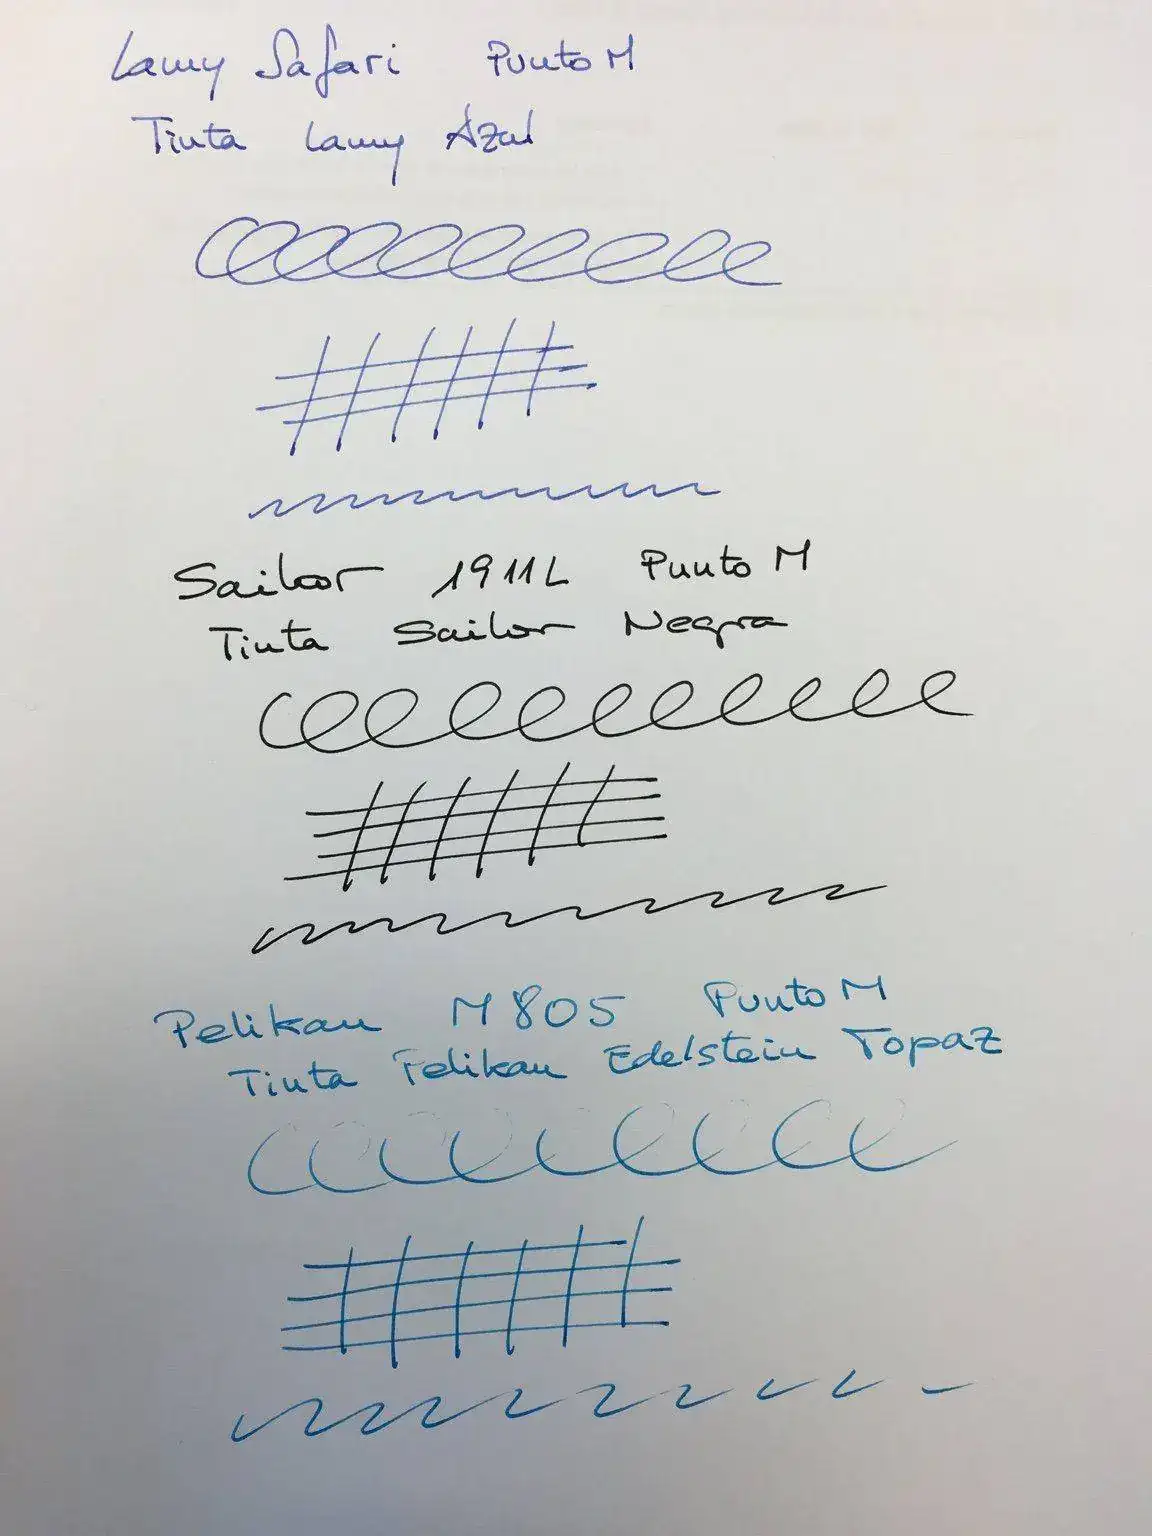 Lamy Safari Punto M
Tinta Lamy Azul
Sailor 1911L Punto M
Tinta Sailor Negra
Pelikan M805 Punto M
Tinta Pelikan Edelstein Topaz